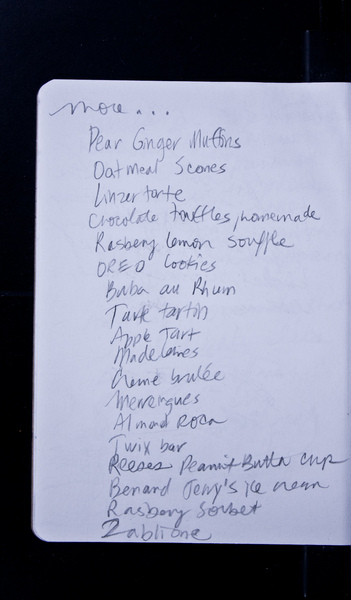 more...
Pear Ginger Muffins
Oatmeal Scones
Linzer torte
Chocolate truffles, homemade
Rasberry lemon souffle
OREO Cookies
Baba au Rhum
Tarte tartin
Apple Tart
Madelaines
Creme brulée
Merringues
Almond ROCA
Twix bar
Reeses Peanut Butter cup
Ben and Jerry's ice cream
Rasberry Sorbet